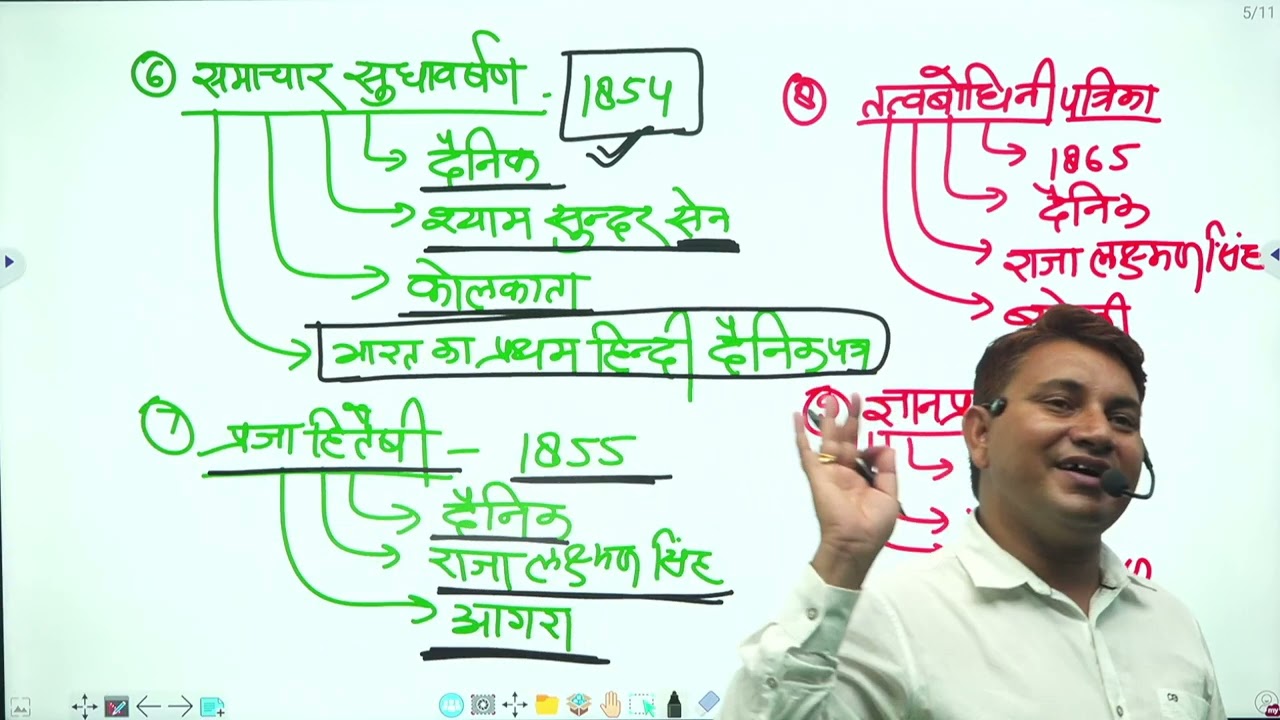 5/11
⑥ समाचार सुधावर्षण - 1854
दैनिक
श्याम सुन्दर सेन
कोलकाता
भारत का प्रथम हिन्दी दैनिक पत्र
⑦ प्रजा हितैषी - 1855
दैनिक
राजा लक्ष्मण सिंह
आगरा
⑧ तत्वबोधिनी पत्रिका
1865
दैनिक
राजा लक्ष्मण सिंह